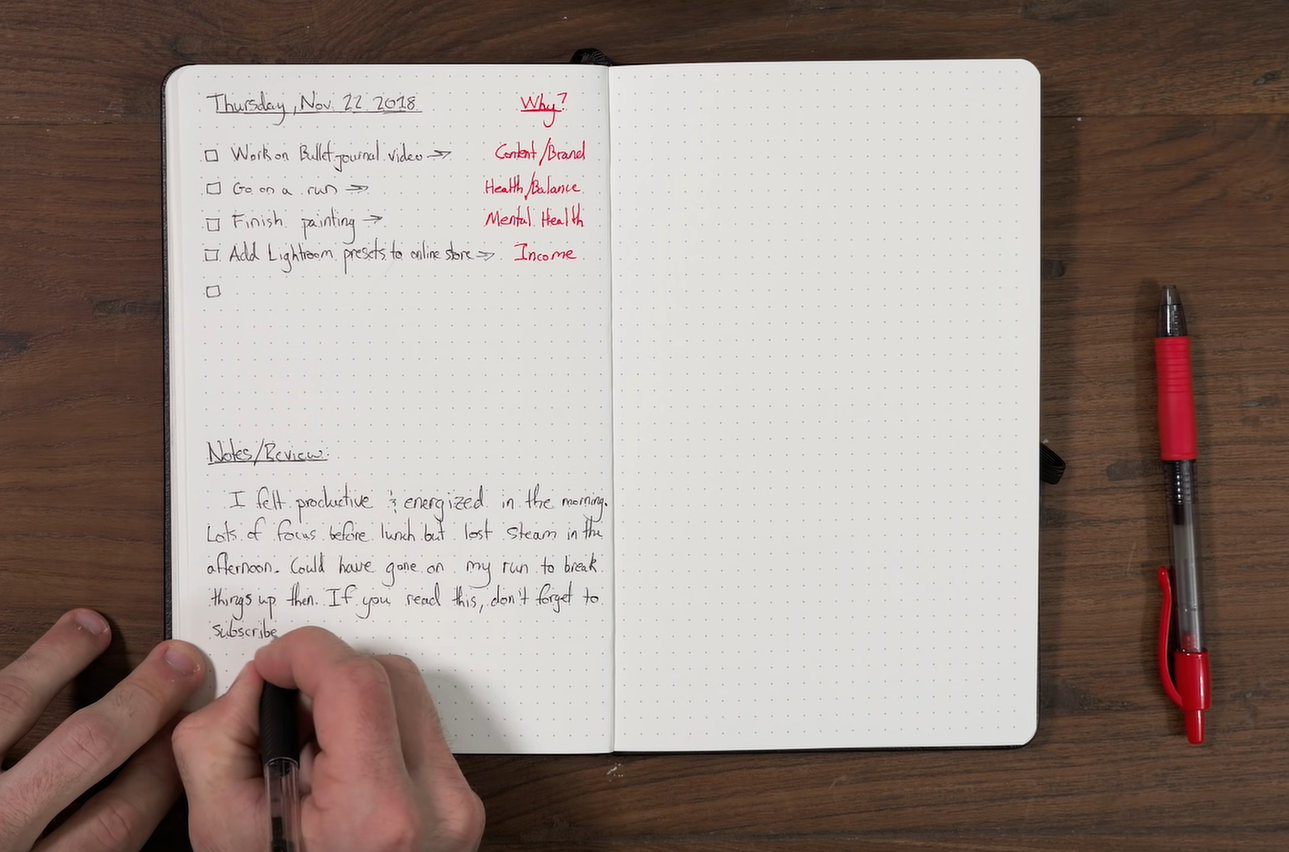 Thursday, Nov. 22 2018 Why?
Work on Bullet journal video → Content/Brand
Go on a run → Health/Balance
Finish painting → Mental Health
Add Lightroom presets to online store → Income
Notes/Review:
I felt productive & energized in the morning.
Lots of focus before lunch but lost steam in the
afternoon. Could have gone on my run to break
things up then. If you read this, don't forget to
subscribe